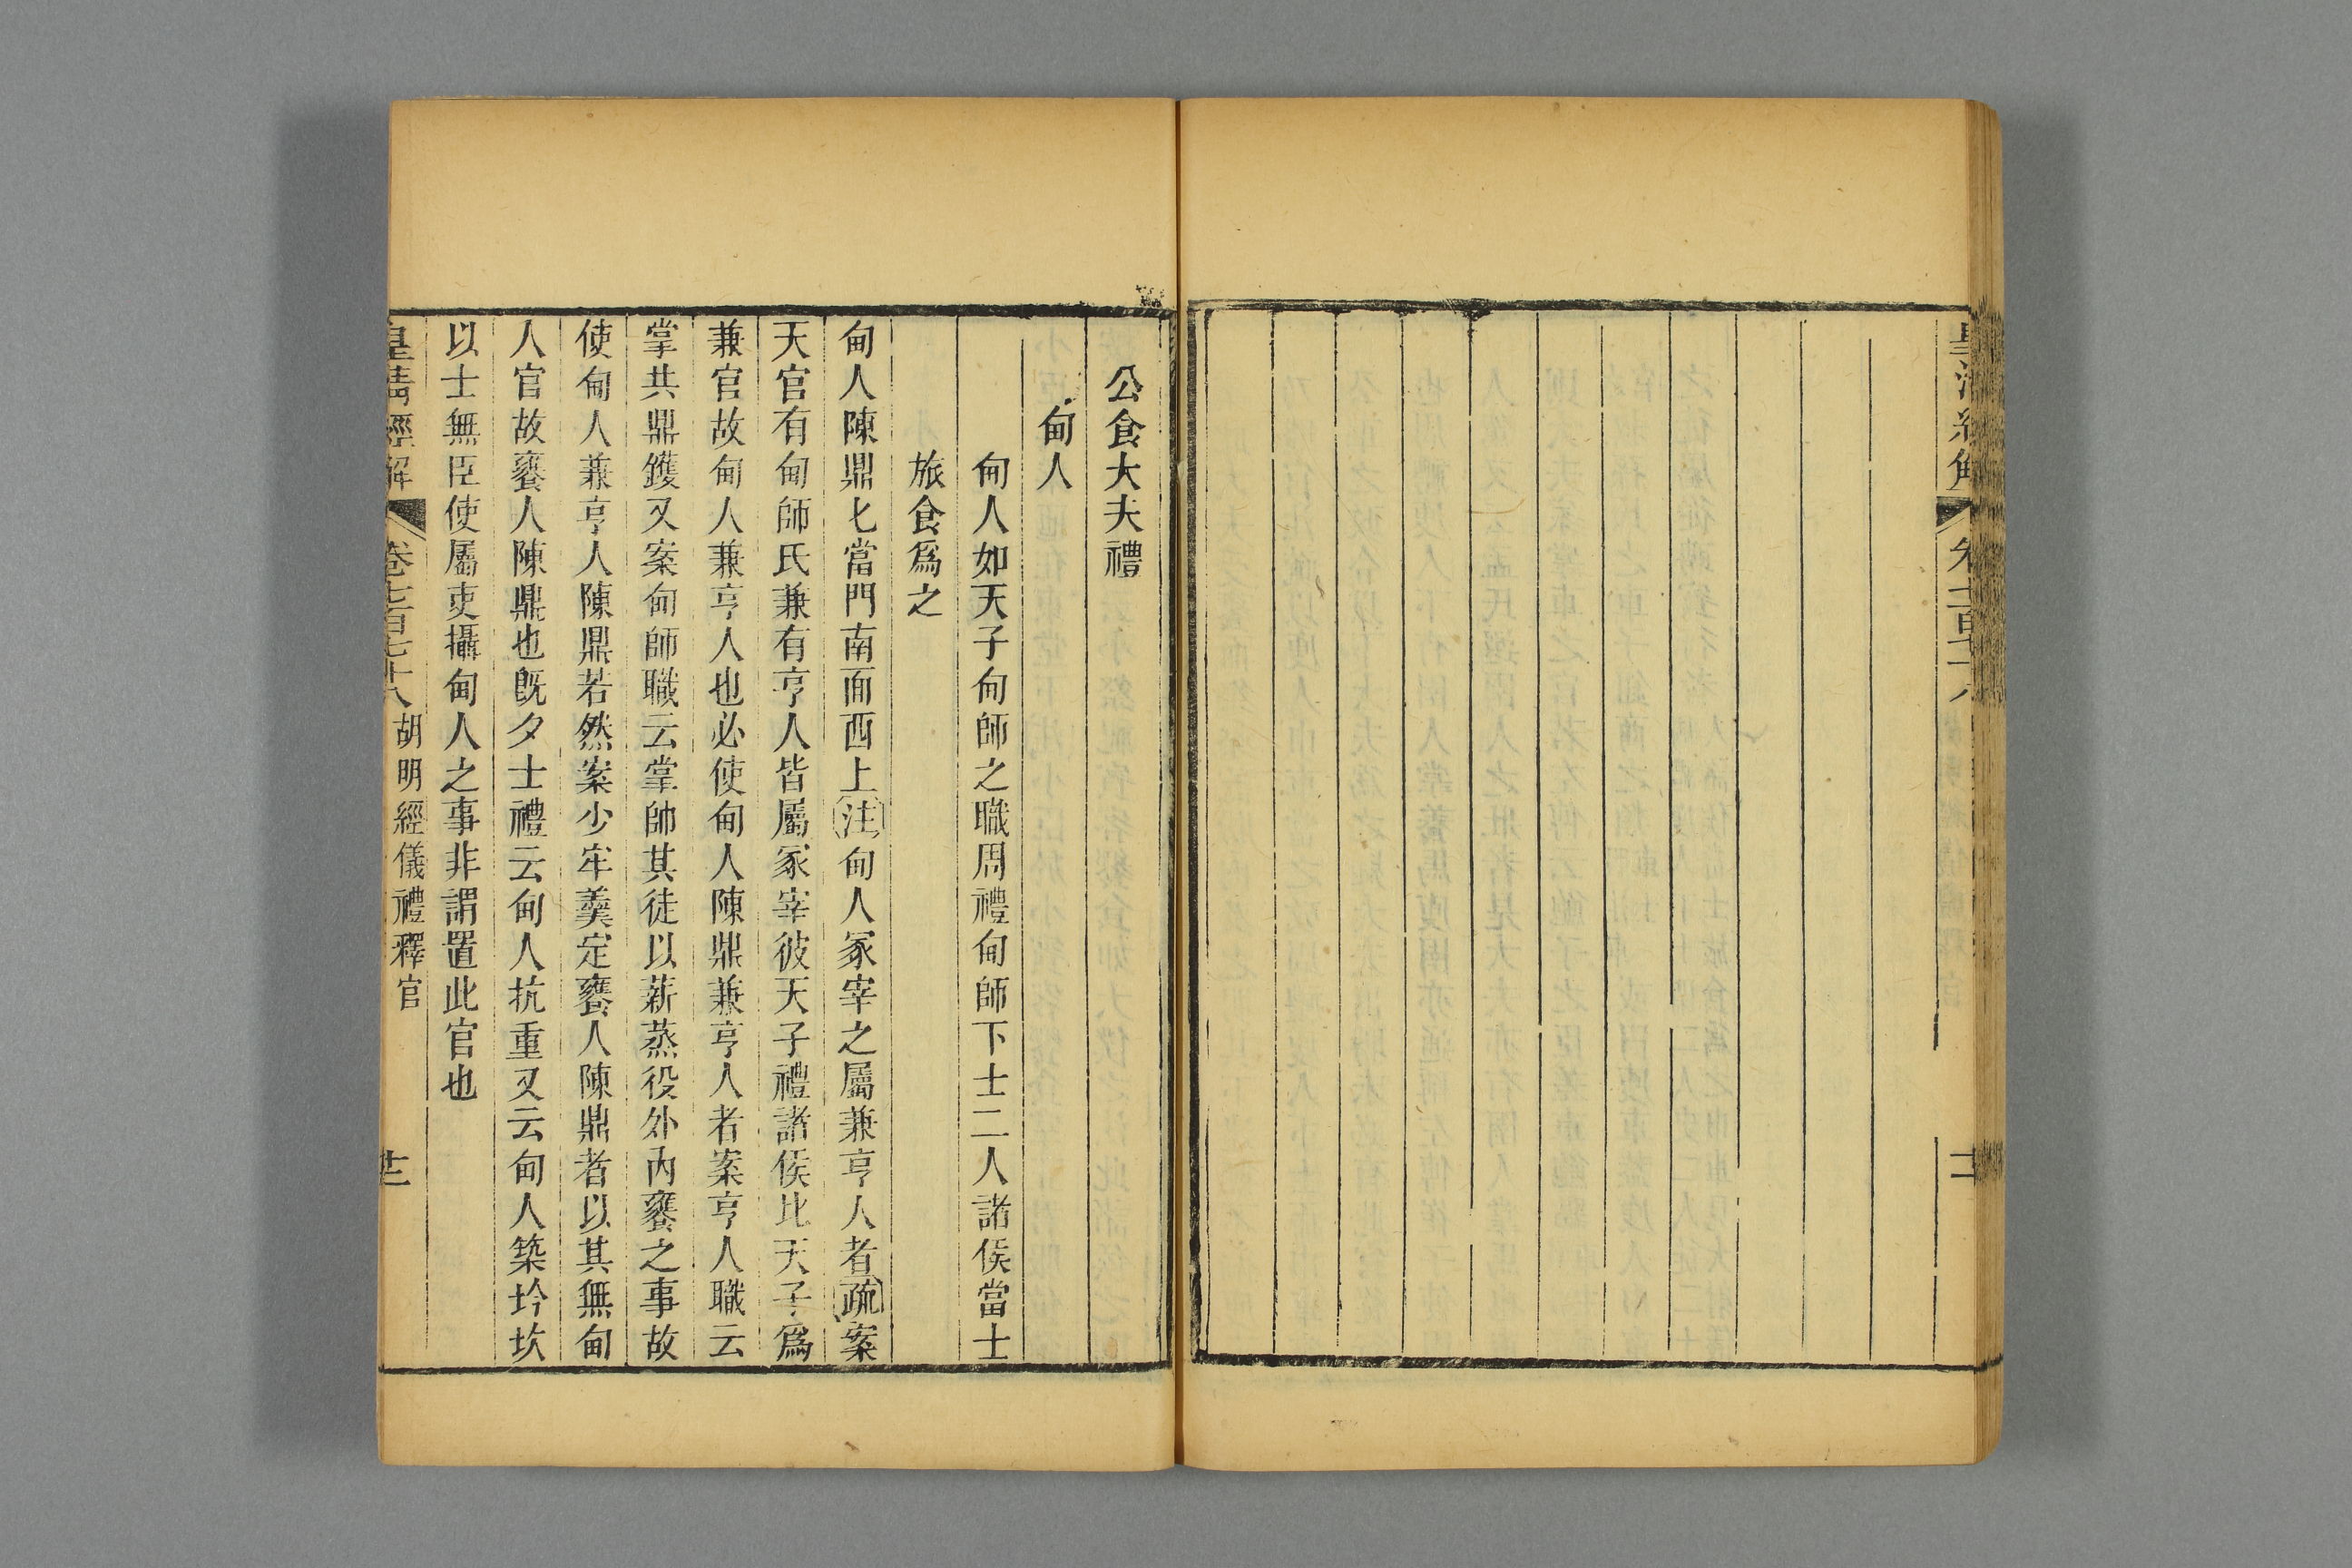 公食大夫禮
甸人
甸人如天子甸師之職周禮甸師下士二人諸侯當士
旅食爲之
甸人陳鼎七當門南面西上注甸人冢宰之屬兼亨人者疏案
天官有甸師氏兼有亨人皆屬冢宰彼天子禮諸侯比天子爲
兼官故甸人兼亨人也必使甸人陳鼎兼亨人者案亨人職云
掌共鼎鑊又案甸師職云掌帥其徒以薪蒸役外內饔之事故
使甸人兼亨人陳鼎若然案少牢羹定饔人陳鼎者以其無甸
人官故饔人陳鼎也旣夕士禮云甸人抗重又云甸人築坅坎
以士無臣使屬吏攝甸人之事非謂置此官也
皇清經解 卷七百七十八 胡明經儀禮釋官